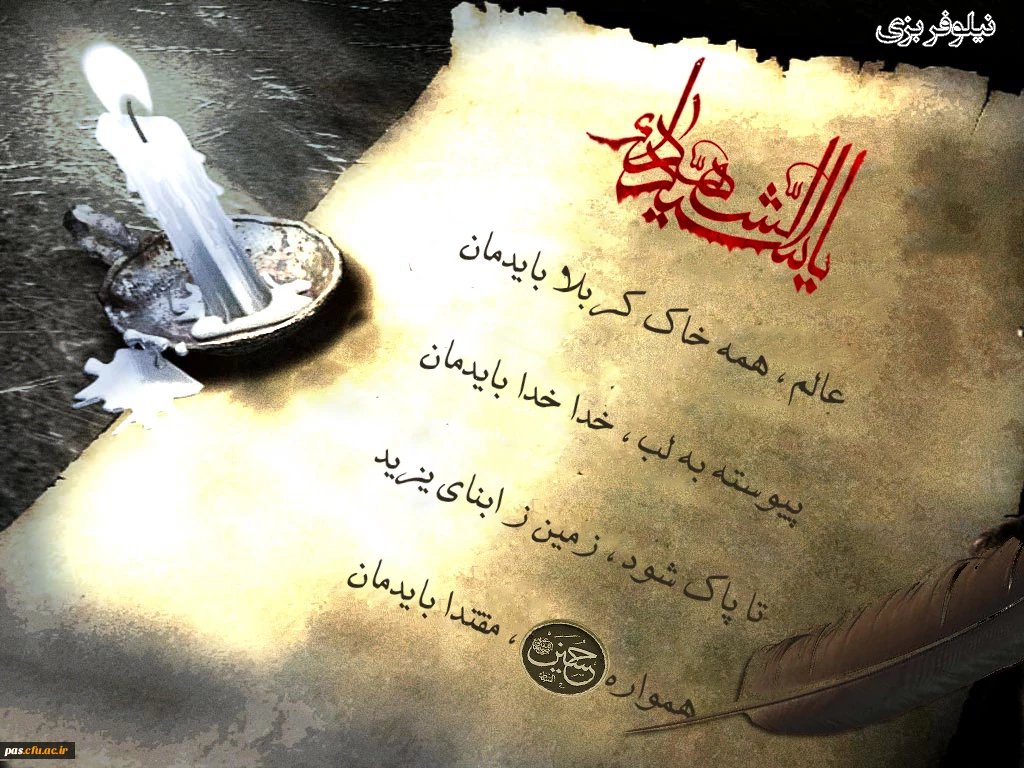 نیلوفر بزی
یا سید الشهداء
عالم ، همه خاک کربلا بایدمان
پیوسته به لب ، خدا خدا بایدمان
تا پاک شود ، زمین ز ابنای یزید
همواره حسین ، مقتدا بایدمان
pas.cfu.ac.ir